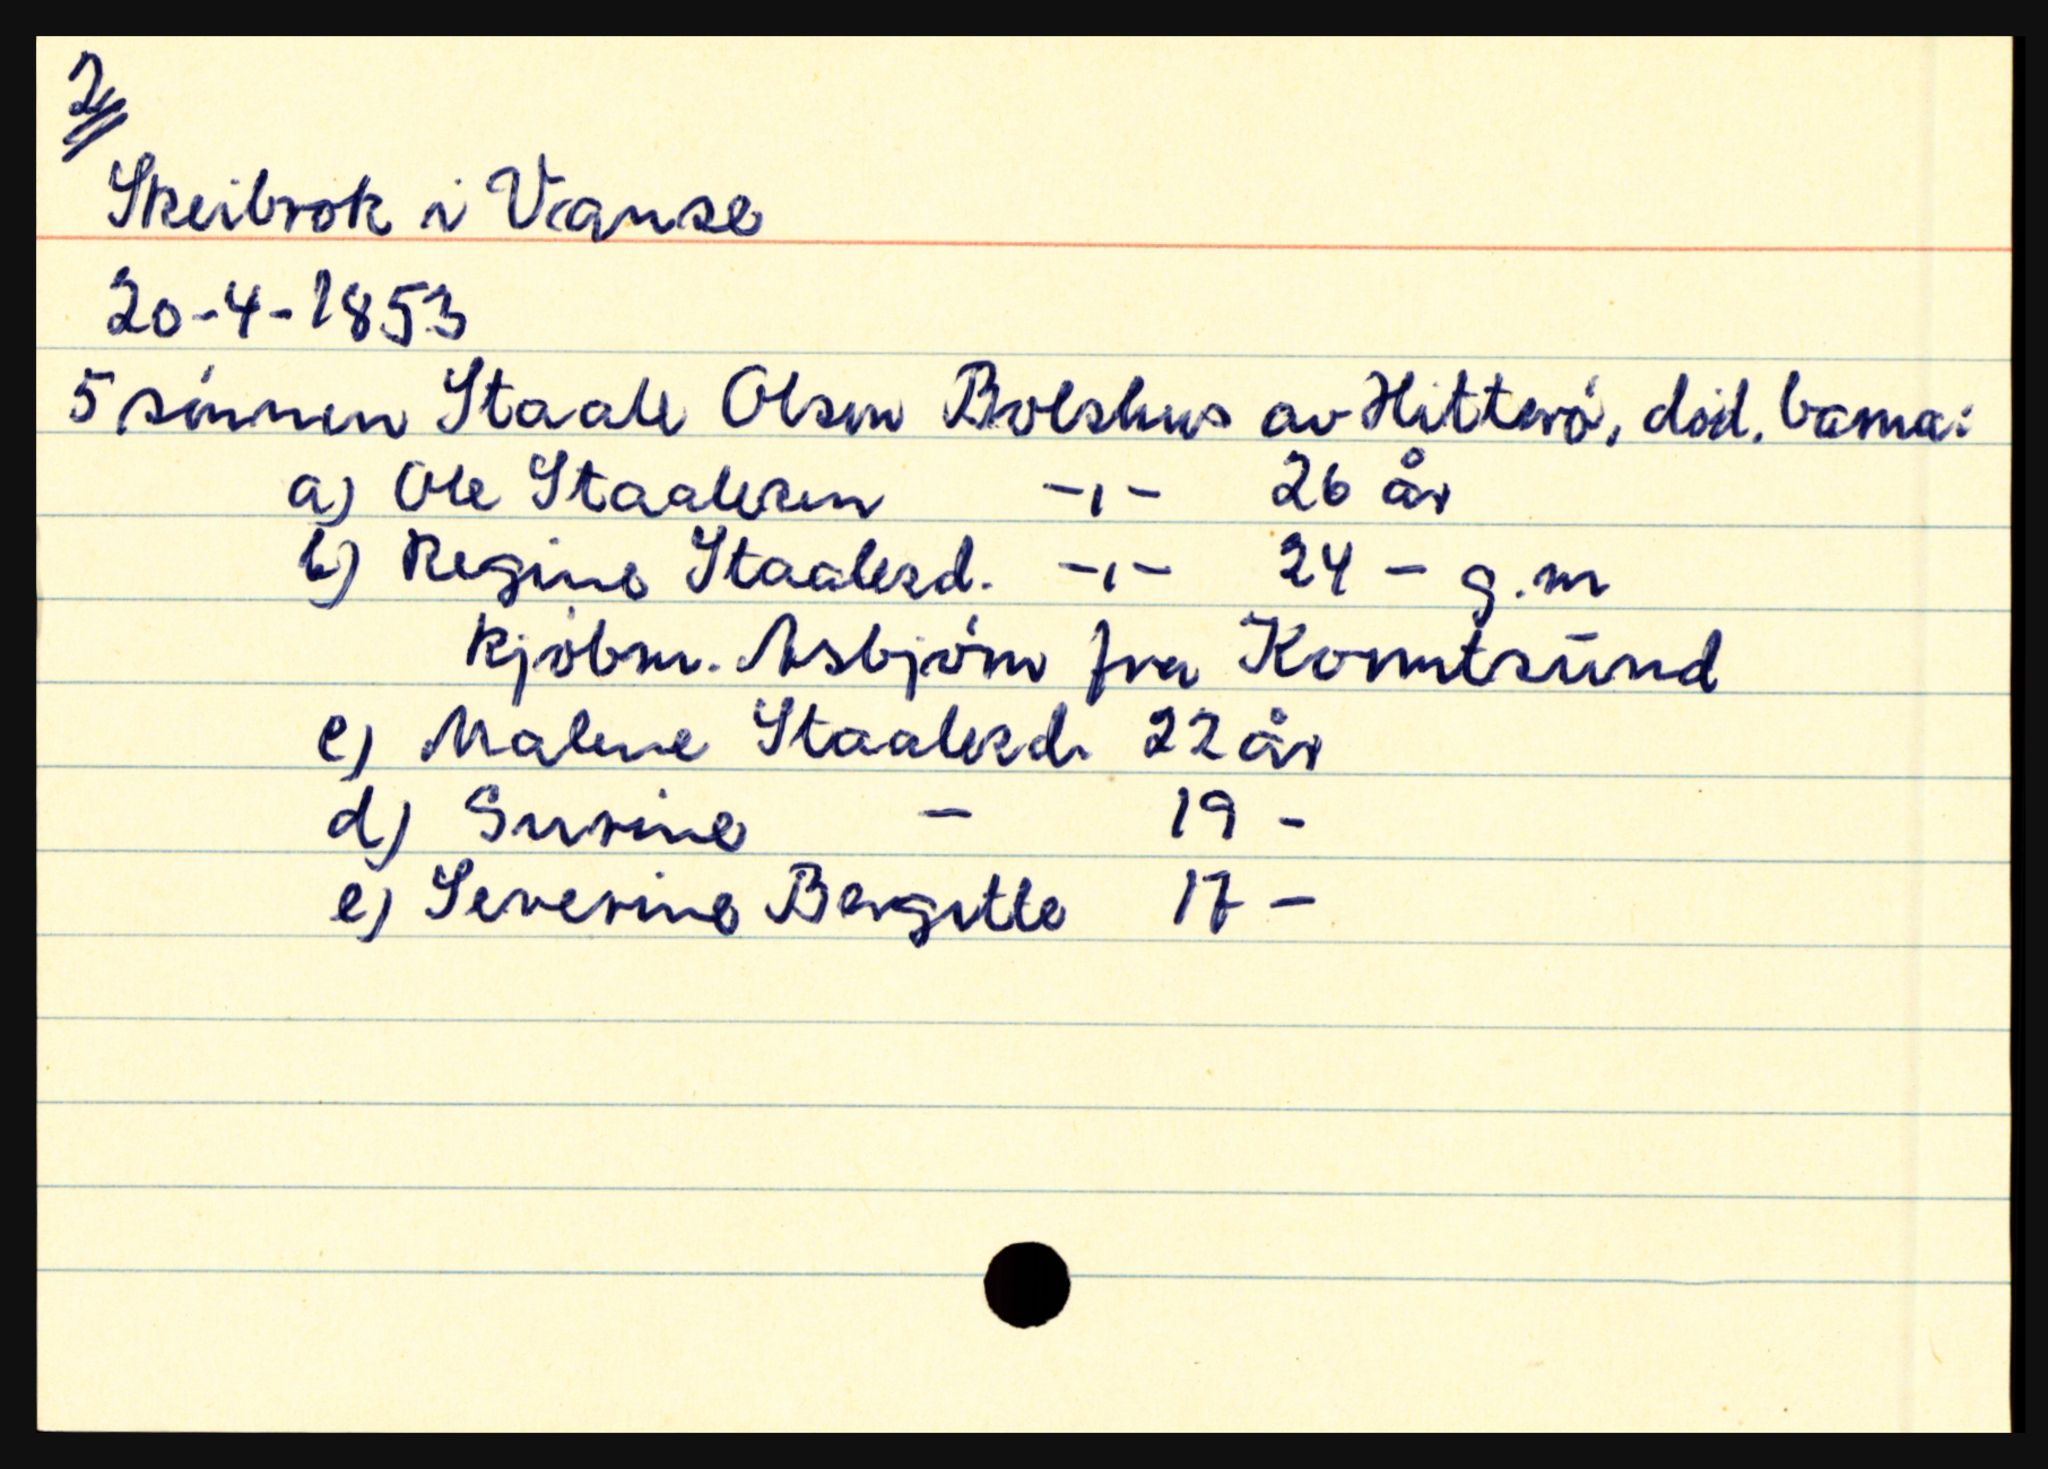 2
Skeibrok i Vanse
20-4-1853
5 sønnen Staale Olsen Bolshus av Hitterø, død. barna:
a) Ole Staalesen -,- 26 år
b) Regine Staalesd. -,- 24 - g.m
kjøbm. Asbjørn fra
c) Malene Staalesd. 22 år
d) Surine - 19 -
e) Severine Bergitte 17 -